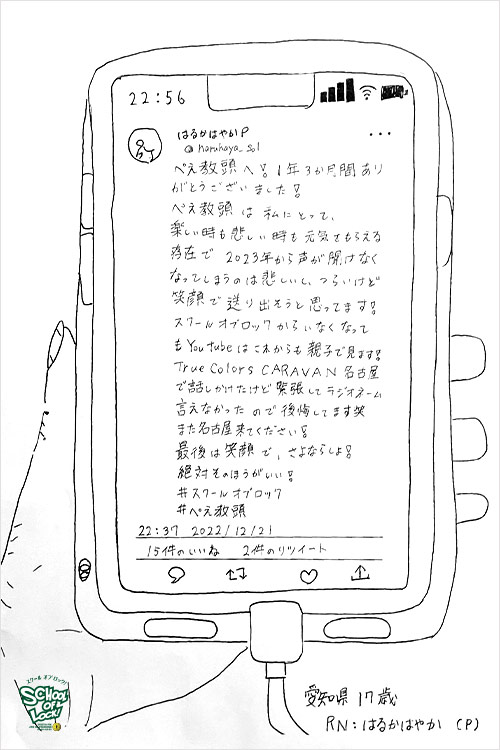 22:56
はるかはやかP
@haruhaya_sol
ぺえ教頭へ！1年3か月間あり
がとうございました！
ぺえ教頭は私にとって、
楽しい時も悲しい時も元気をもらえる
存在で2023年から声が聞けなく
なってしまうのは悲しいし、つらいけど
笑顔で送り出そうと思ってます！
スクールオブロックからいなくなって
もYouTubeはこれからも親子で見ます！
True Colors CARAVAN名古屋
で話しかけたけど緊張してラジオネーム
言えなかったので後悔してます笑
また名古屋来てください！
最後は笑顔で、さよならしよ！
絶対そのほうがいい！
#スクールオブロック
#ぺえ教頭
22:37 2022/12/21
15件のいいね 2件のリツイート
スクールオブロック!
SCHOOL OF LOCK!
愛知県17歳
RN:はるかはやか(P)